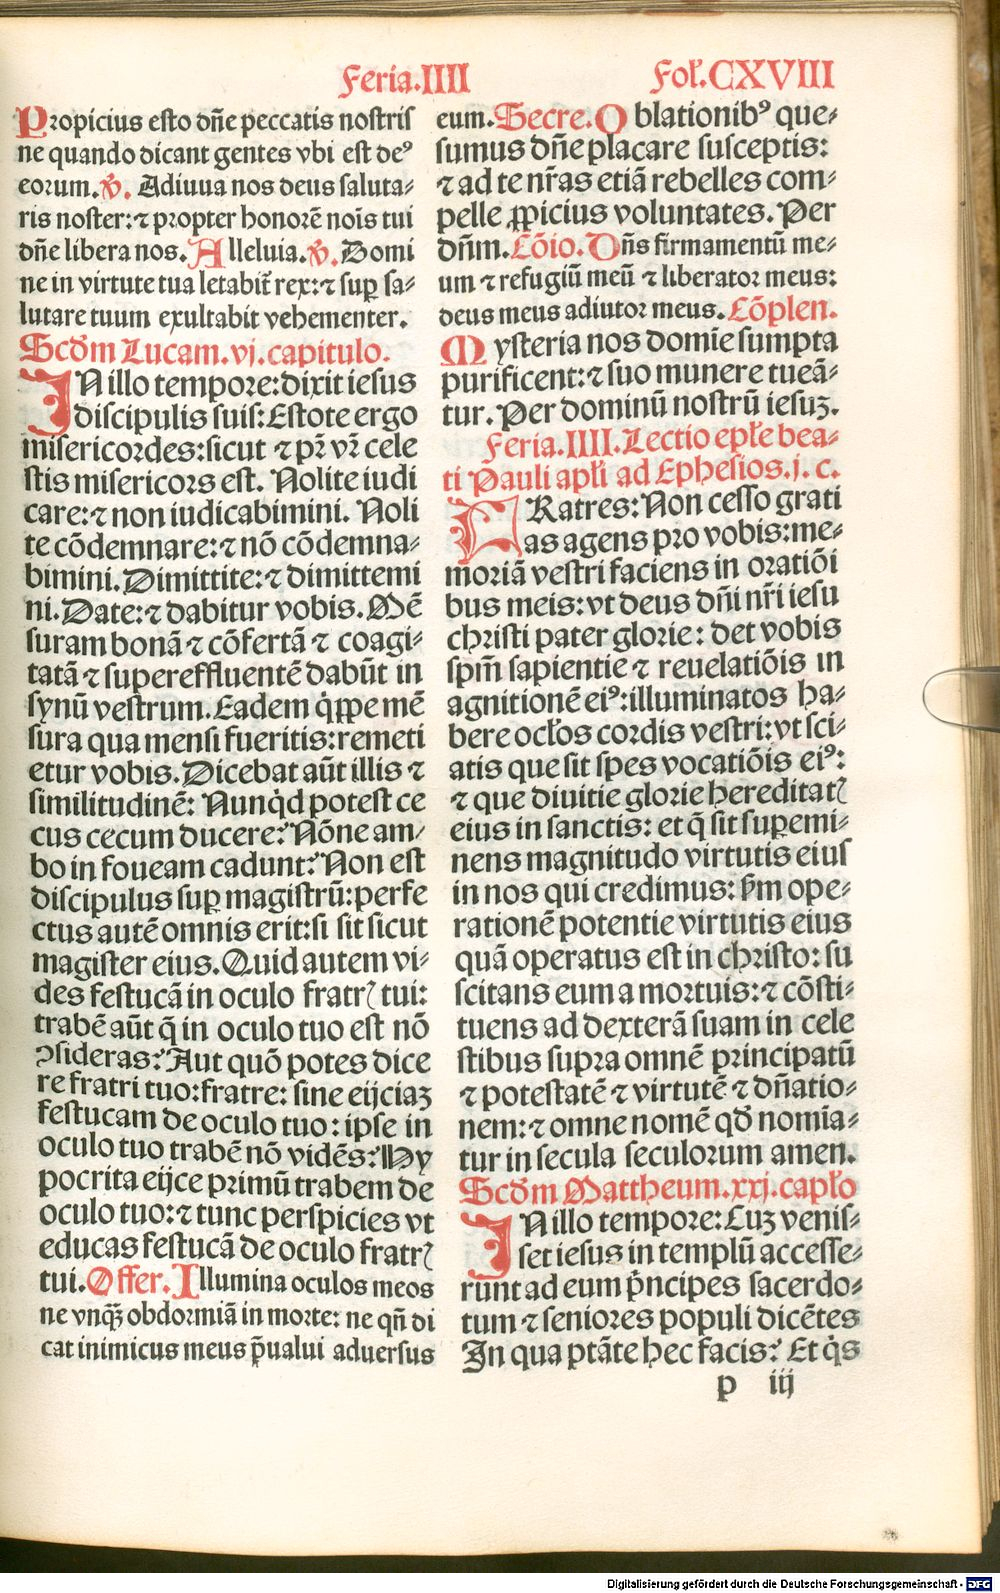 Feria.IIII
Fol̃.CXVIII
Propicius esto dñe peccatis nostris
ne quando dicant gentes vbi est deꝰ
eorum.℣. Adiuua nos deus saluta⸗
ris noster:⁊ propter honorẽ noĩs tui
dñe libera nos. Alleluia.℣. Domi
ne in virtute tua letabit̃ rex:⁊ suꝑ sa⸗
lutare tuum exultabit vehementer.
Scd̃m Lucam.vj.capitulo.
IN illo tempore:dixit iesus
discipulis suis:Estote ergo
misericordes:sicut ⁊ pr̃ vr̃ cele
stis misericors est. Nolite iudi
care:⁊ non iudicabimini. Noli
te cõdemnare:⁊ nõ cõdemna⸗
bimini. Dimittite:⁊ dimittemi
ni. Date:⁊ dabitur vobis. Mẽ
suram bonã ⁊ cõfertã ⁊ coagi⸗
tatã ⁊ supereffluentẽ dabũt in
synũ vestrum. Eadem q̇ꝓpe mẽ
sura qua mensi fueritis:remeti
etur vobis. Dicebat aũt illis ⁊
similitudinẽ: Nunq̇d potest ce
cus cecum ducere? Nõne am⸗
bo in foueam cadunt? Non est
discipulus suꝑ magistrũ:perfe
ctus autẽ omnis erit:si sit sicut
magister eius. Quid autem vi⸗
des festucã in oculo fratrꝭ tui:
trabẽ aũt q̃ in oculo tuo est nõ
ꝯsideras? Aut quõ potes dice
re fratri tuo:fratre: sine eijciaꝫ
festucam de oculo tuo: ipse in
oculo tuo trabẽ nõ vidẽs? Hy
pocrita eijce primũ trabem de
oculo tuo:⁊ tunc perspicies vt
educas festucã de oculo fratrꝭ
tui. Offer. Illumina oculos meos
ne vnq̃ꝫ obdormiã in morte: ne qñ di
cat inimicus meus p̃ualui aduersus
eum. Secre. Oblationibꝰ que⸗
sumus dñe placare susceptis:
⁊ ad te nr̃as etiã rebelles com⸗
pelle ꝓpicius voluntates. Per
dñm. Cõio. Dñs firmamentũ me⸗
um ⁊ refugiũ meũ ⁊ liberator meus:
deus meus adiutor meus. Cõplen.
Mysteria nos domĩe sumpta
purificent:⁊ suo munere tueã⸗
tur. Per dominũ nostrũ iesuꝫ.
Feria.IIII. Lectio ep̃le bea⸗
ti Pauli apl̃i ad Ephesios.j.c.
FRatres: Non cesso grati
as agens pro vobis:me⸗
moriã vestri faciens in oratiõi
bus meis:vt deus dñi nr̃i iesu
christi pater glorie: det vobis
spm̃ sapientie ⁊ reuelatiõis in
agnitionẽ eiꝰ:illuminatos ha⸗
bere ocl̃os cordis vestri:vt sci⸗
atis que sit spes vocatiõis eiꝰ:
⁊ que diuitie glorie hereditatꝭ
eius in sanctis: et q̃ sit suꝑemi⸗
nens magnitudo virtutis eius
in nos qui credimus: ẜm ope⸗
rationẽ potentie virtutis eius
quã operatus est in christo: su
scitans eum a mortuis:⁊ cõsti⸗
tuens ad dexterã suam in cele
stibus supra omnẽ principatũ
⁊ potestatẽ ⁊ virtutẽ ⁊ dñatio⸗
nem:⁊ omne nomẽ qd̃ nomĩa⸗
tur in secula seculorum amen.
Scd̃m Mattheum.xxj.capl̃o
IN illo tempore: Cuꝫ venis⸗
set iesus in templũ accesse⸗
runt ad eum p̃ncipes sacerdo⸗
tum ⁊ seniores populi dicẽtes
In qua ptãte hec facis? Et q̇s
p iij
Digitalisierung gefördert durch die Deutsche Forschungsgemeinschaft - DFG